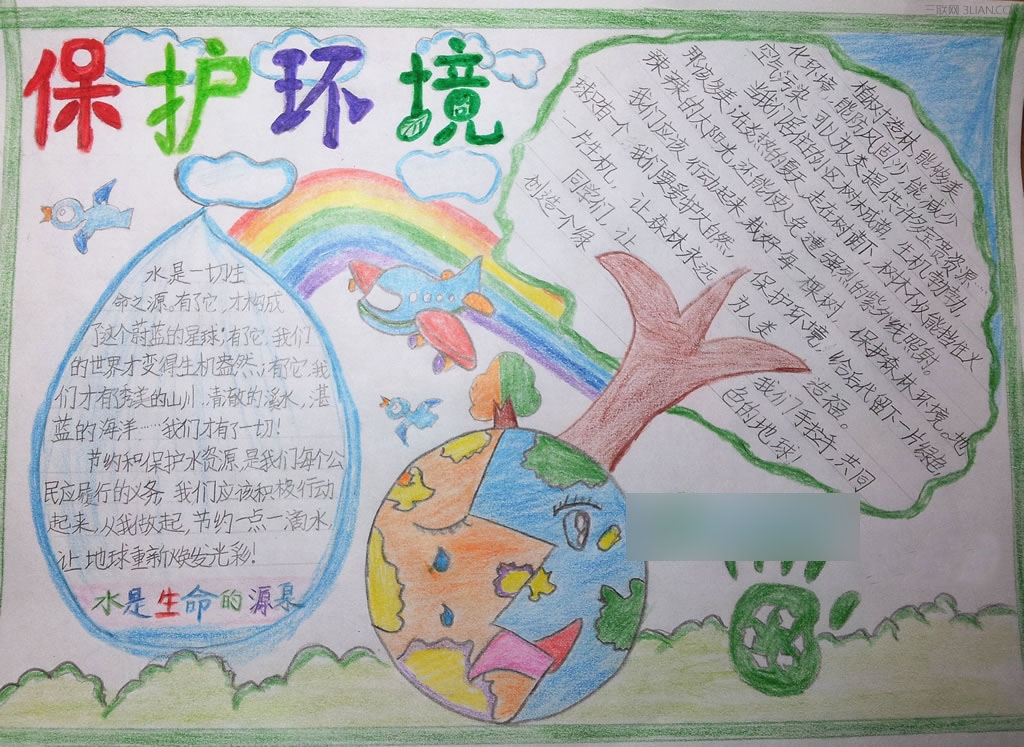 三联网 3LIAN.COM
保护环境
水是一切生
命之源。有了它,才构成
了这个蔚蓝的星球;有了它,我们
的世界才变得生机盎然;有了它,我
们才有了秀美的山川,清澈的溪水,湛
蓝的海洋……我们才有了一切!
节约和保护水资源,是我们每个公
民应履行的义务,我们应该积极行动
起来,从我做起,节约一点一滴水,
让地球重新焕发光彩!
水是生命的源泉
植树造林,能够美
化环境,能防风固沙,能减少
空气污染,可以为人类提供许多宝贵资源。
当我们居住的小区树木成荫,生机勃勃,
那该多美;在炎热的夏天,走在树荫下,树木不仅能挡住火
辣辣的太阳光,还能使人免遭强烈的紫外线照射。
我们应该行动起来,栽好每一棵树,保护森林环境。地
球只有一个,我们要爱护大自然,保护环境,给后代留下一片绿色
一片生机,让森林永远为人类造福。
同学们,让我们手拉手,共同
创造一个绿色的地球!